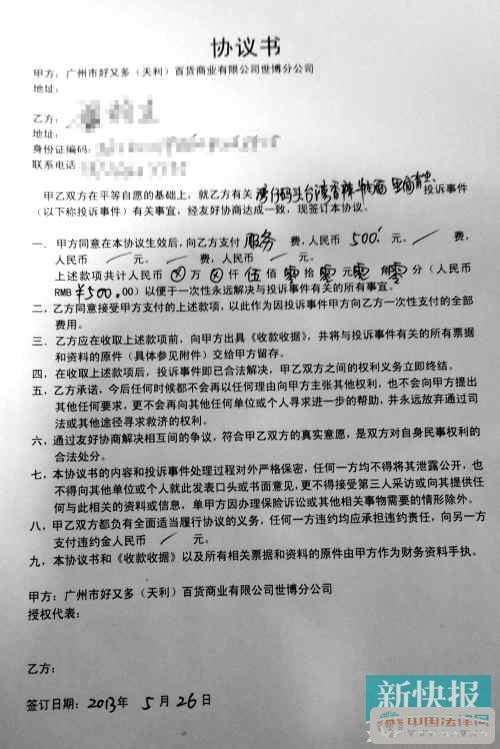 协议书
甲方：广州市好又多（天利）百货商业有限公司世博分公司
地址：
乙方：
地址：
身份证编码：
联系电话
甲乙双方在平等自愿的基础上，就乙方有关 湾仔码头台湾香 投诉事件
（以下称投诉事件）有关事宜，经友好协商达成一致，现签订本协议。
一、甲方同意在本协议生效后，向乙方支付 服务 费，人民币 500 元、／费，
人民币 ／ 元。／费，人民币 ／ 元。
上述款项共计人民币 ⊗ 万 ⊗ 仟 伍 佰 零 拾 零 元 零 角 零 分（人民币
RMB ¥500.00）以便于一次性永远解决与投诉事件有关的所有事宜。
二、乙方同意接受甲方支付的上述款项，以此作为因投诉事件甲方向乙方一次性支付的全部
费用。
三、乙方应在收取上述款项前，向甲方出具《收款收据》，并将与投诉事件有关的所有票据
和资料的原件（具体参见附件）交给甲方留存。
四、在收取上述款项后，投诉事件即已合法解决，甲乙双方之间的权利义务立即终结。
五、乙方承诺，今后任何时候都不会再以任何理由向甲方主张其他权利，也不会向甲方提出
其他任何要求，更不会再向其他任何单位或个人寻求进一步的帮助，并永远放弃通过司
法或其他途径寻求救济的权利。
六、通过友好协商解决相互间的争议，符合甲乙双方的真实意愿，是双方对自身民事权利的
合法处分。
七、本协议书的内容和投诉事件处理过程对外严格保密，任何一方均不得将其泄露公开，也
不得向其他单位或个人就此发表口头或书面意见，更不得接受第三人采访或向其提供任
何与此相关的资料或信息，单甲方因办理保险诉讼或其他相关事物需要的情形除外。
八、甲乙双方都负有全面适当履行协议的义务，任何一方违约均应承担违约责任，向另一方
支付违约金人民币 ／ 元。
九、本协议书和《收款收据》以及所有相关票据和资料的原件由甲方作为财务资料手执。
甲方：广州市好又多（天利）百货商业有限公司世博分公司
授权代表：
乙方：
签订日期：2013年 5 月 26 日
新快报
中国法律网